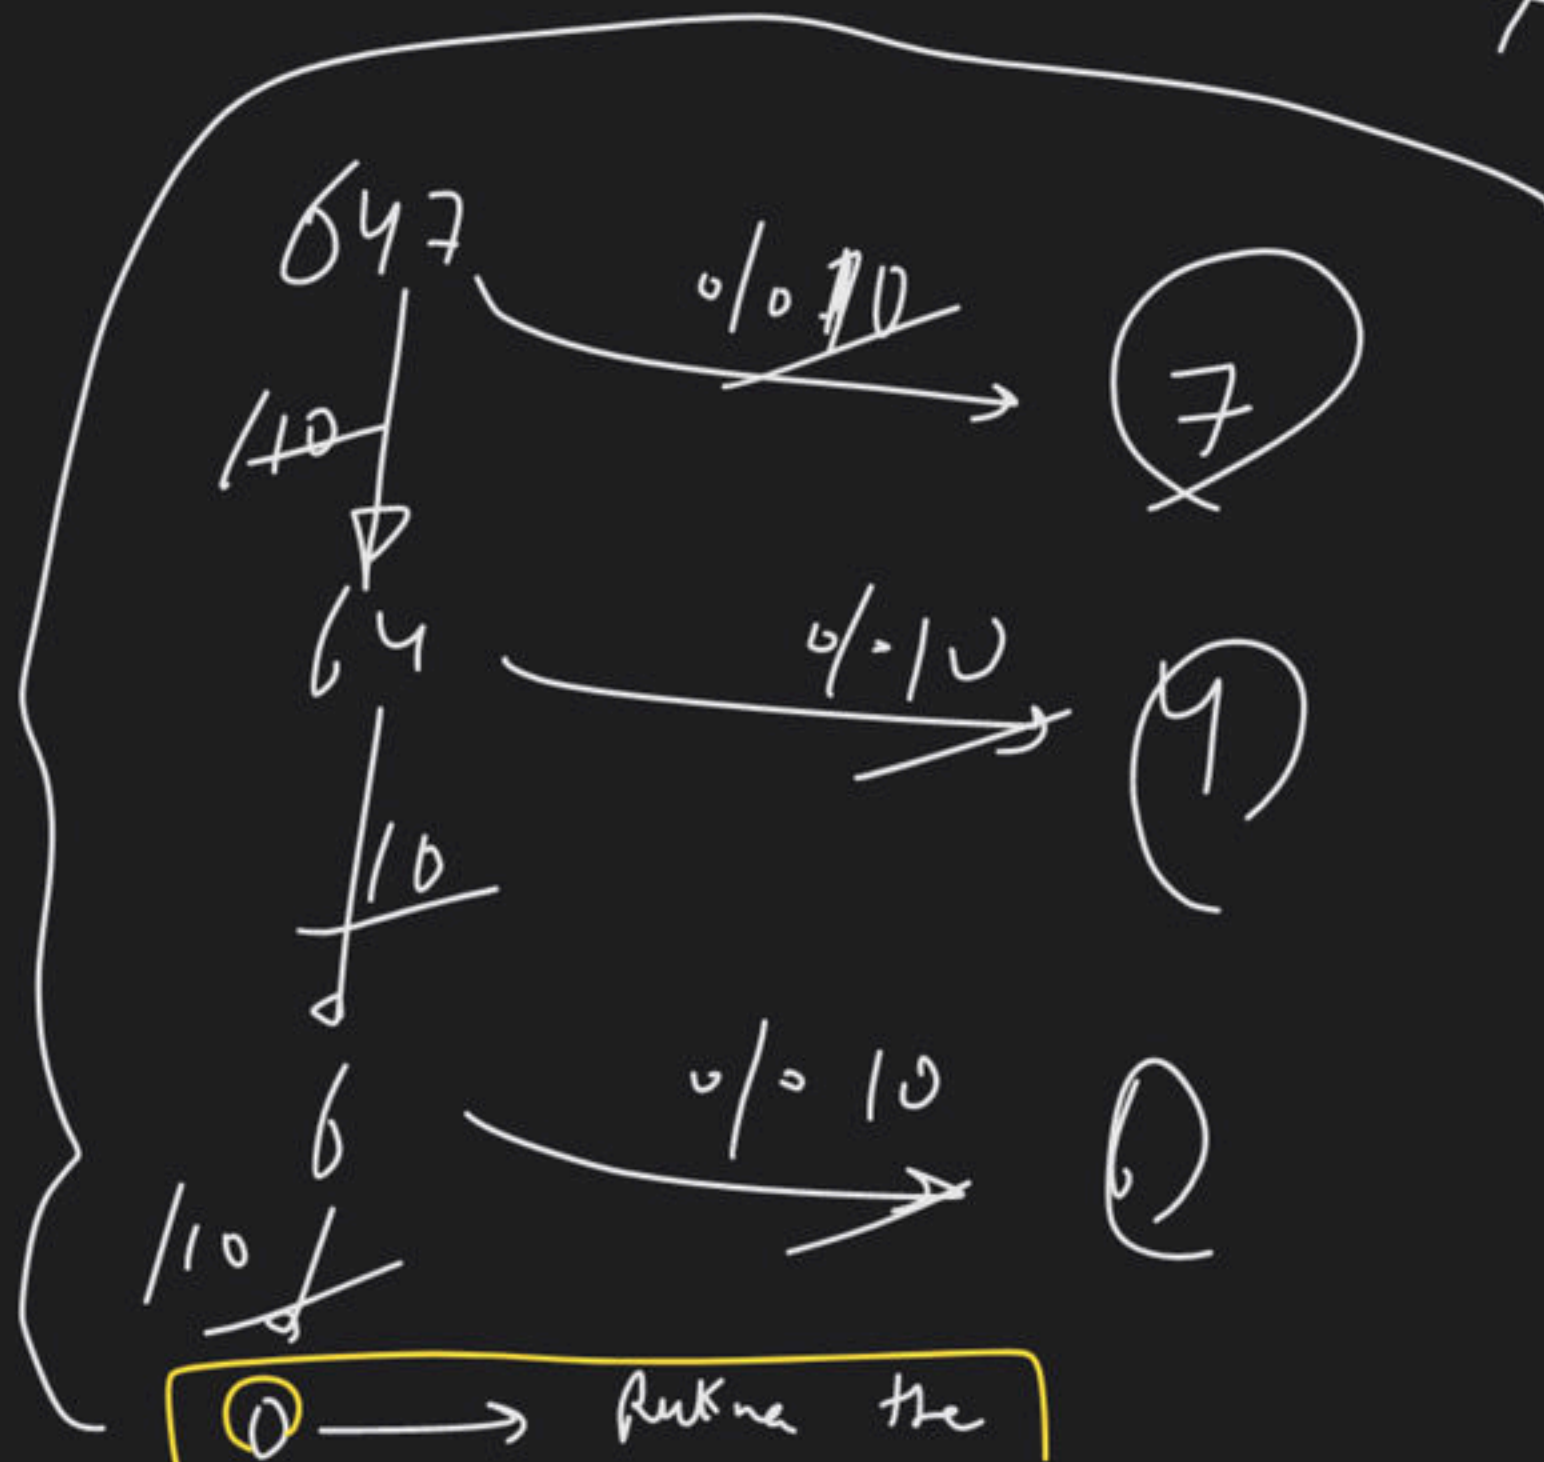 647
%10
7
/10
64
%10
4
/10
6
%10
6
/10
0 → Rukna the